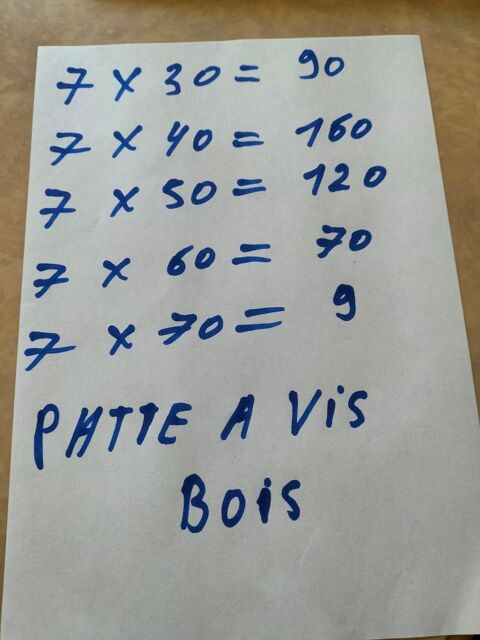 7 x 30 = 90
7 x 40 = 160
7 x 50 = 120
7 x 60 = 70
7 x 70 = 9
PATTE A ViS
BOiS